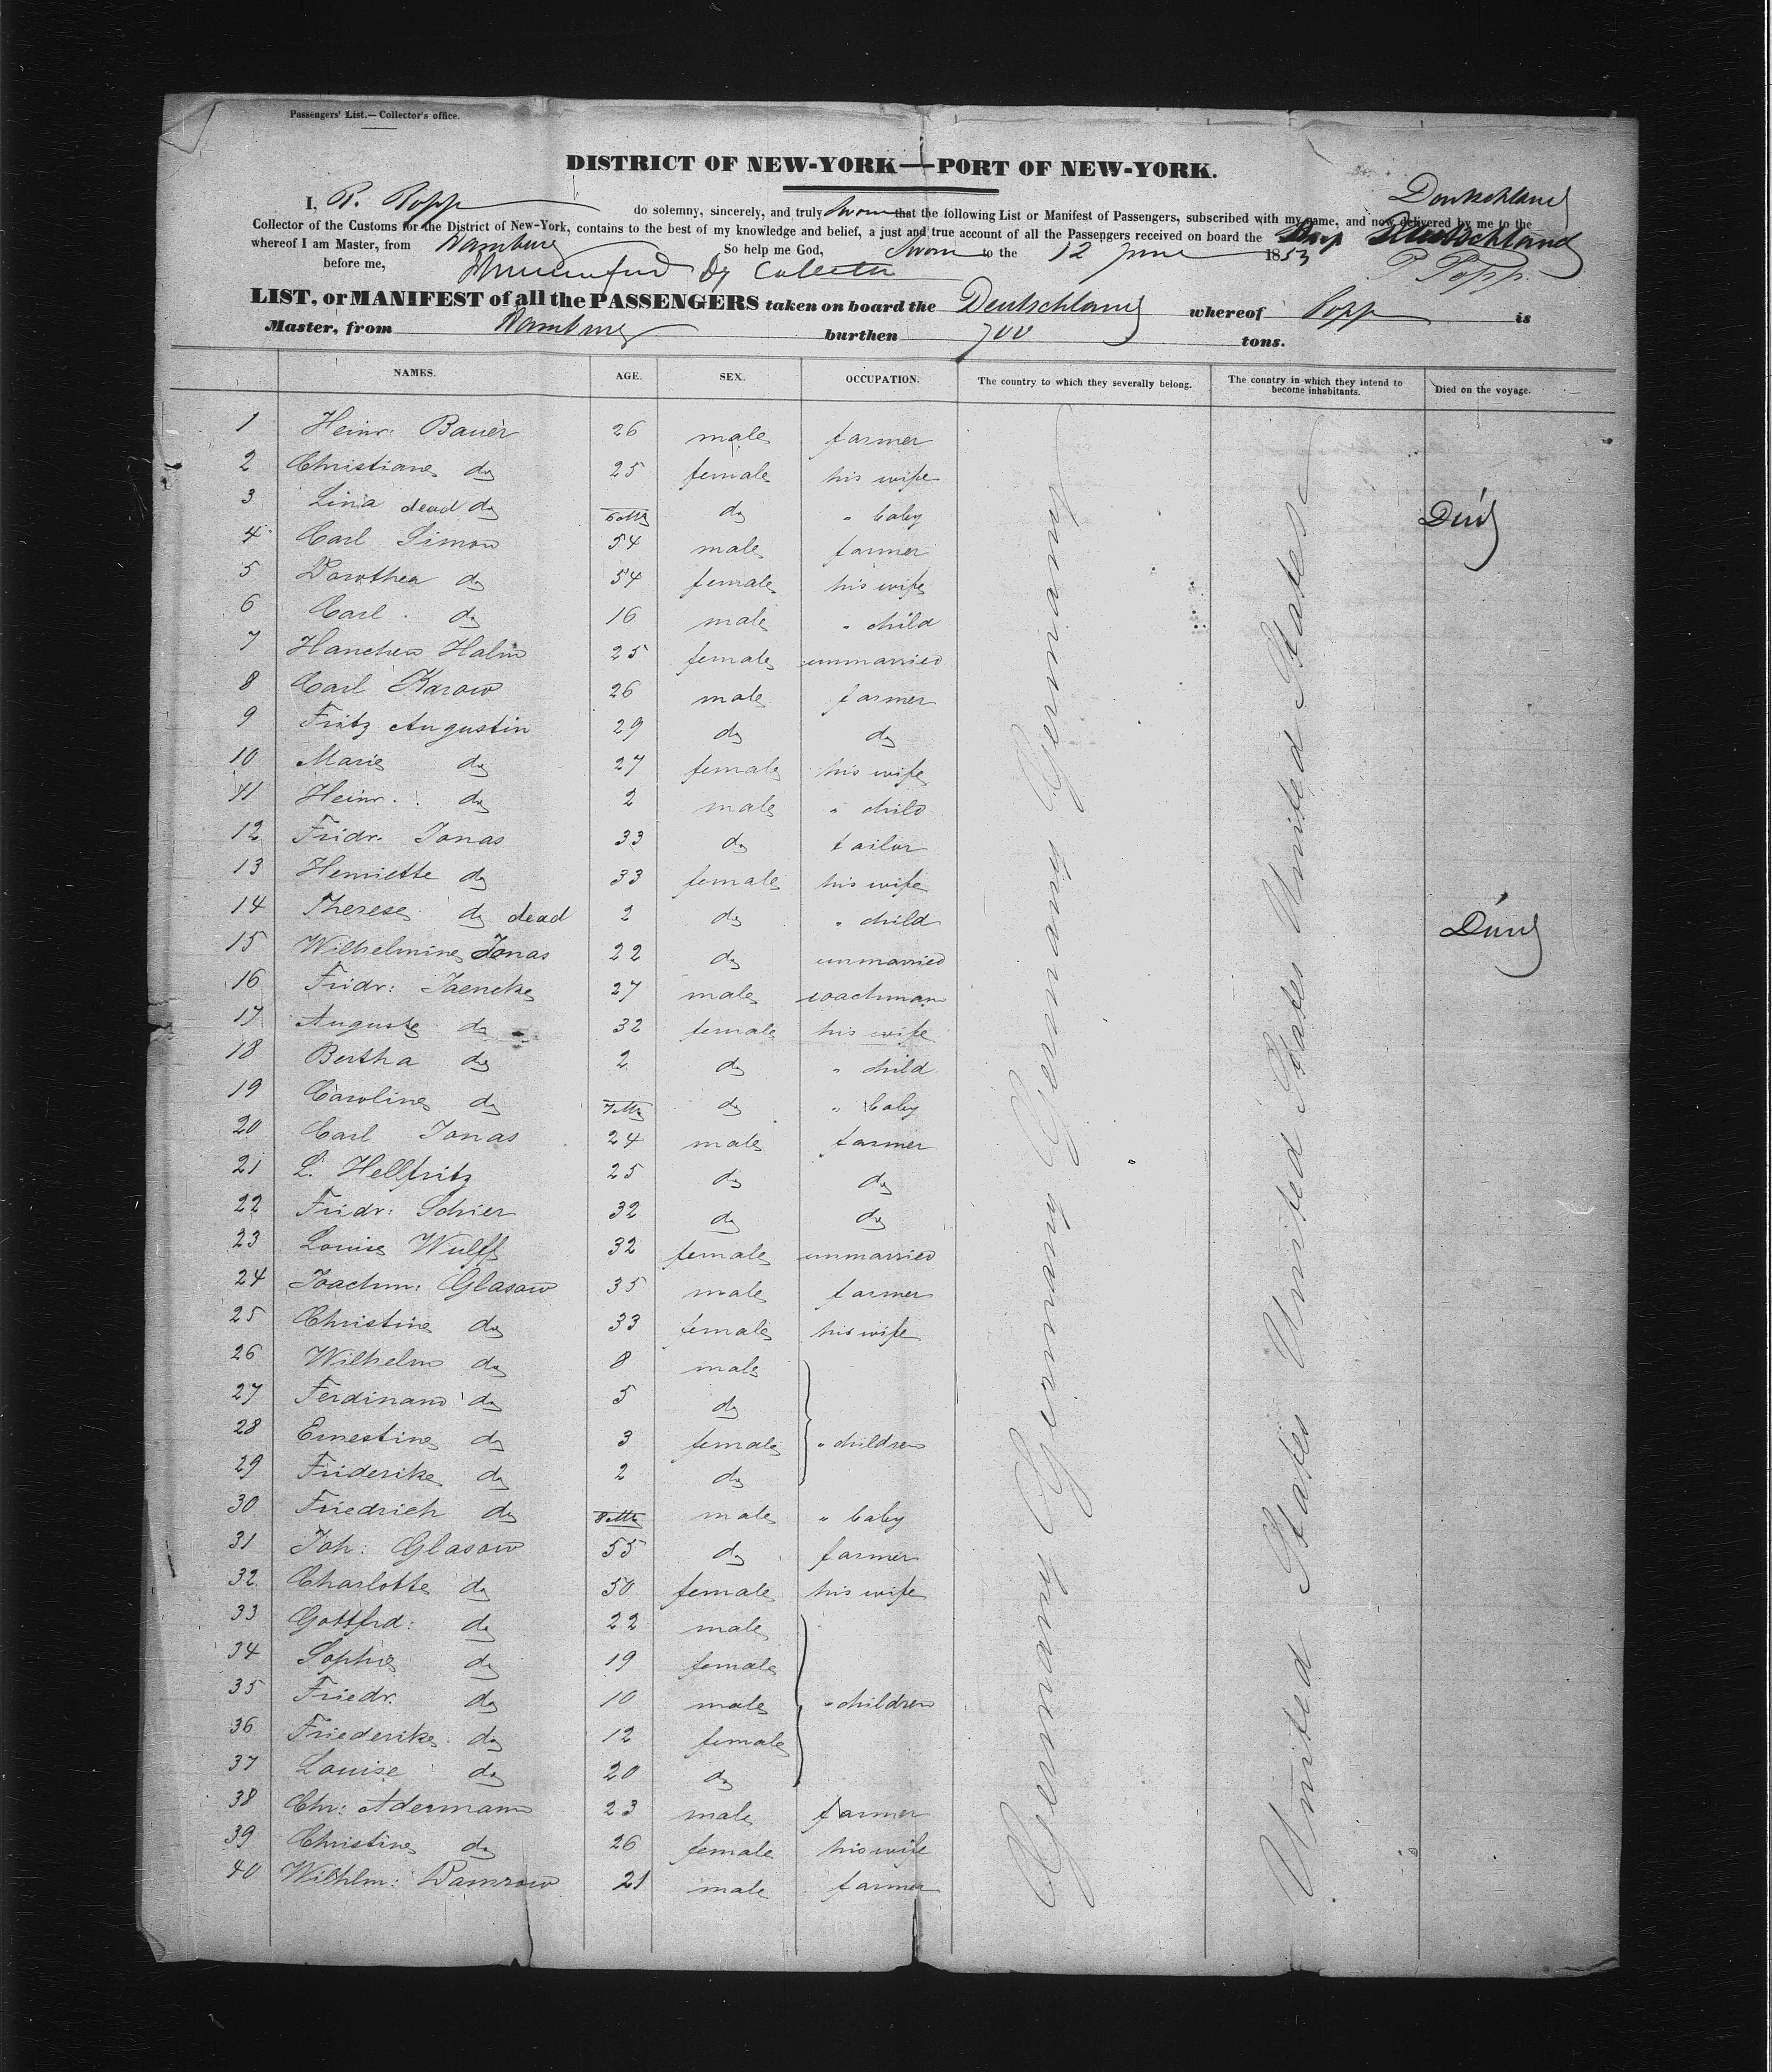 Passengers' List.—Collector's office.
DISTRICT OF NEW-YORK—PORT OF NEW-YORK.
Deutschland
I, P. Popp do solemny, sincerely, and truly sworn that the following List or Manifest of Passengers, subscribed with my name, and now delivered by me to the
Collector of the Customs for the District of New-York, contains to the best of my knowledge and belief, a just and true account of all the Passengers received on board the Ship Deutschland
whereof I am Master, from Hamburg So help me God, Sworn to the 12 June 1853
before me, Dy Collector P Popp.
LIST, or MANIFEST of all the PASSENGERS taken on board the Deutschland whereof Popp is
Master, from Hamburg burthen 700 tons.
NAMES. AGE. SEX. OCCUPATION. The country to which they severally belong. The country in which they intend to become inhabitants. Died on the voyage.
1 Heinr: Bauer 26 male farmer
2 Christiane do 25 female his wife
3 Lina dead do 6 Mts do " baby Died
4 Carl Simon 54 male farmer
5 Dorothea do 54 female his wife
6 Carl do 16 male " child
7 Hanchen Halm 25 female unmarried
8 Carl Karow 26 male farmer
9 Fritz Augustin 29 do do
10 Marie do 27 female his wife
11 Heinr. do 2 male " child
12 Fridr. Jonas 33 do tailor
13 Henriette do 33 female his wife
14 Therese do dead 2 do " child Died
15 Wilhelmine Jonas 22 do unmarried
16 Fridr: Jaencke 27 male coachman
17 Auguste do 32 female his wife
18 Bertha do 2 do " child
19 Caroline do 7 Mts do " baby
20 Carl Jonas 24 male farmer
21 L. Hellfritz 25 do do
22 Fridr: Schier 32 do do
23 Louise Wulff 32 female unmarried
24 Joachm: Glasow 35 male farmer
25 Christine do 33 female his wife
26 Wilhelm do 8 male
27 Ferdinand do 5 do
28 Ernestine do 3 female " children
29 Friderike do 2 do
30 Friedrich do 8 Mts male " baby
31 Joh: Glasow 55 do farmer
32 Charlotte do 50 female his wife
33 Gottfrd: do 22 male
34 Sophie do 19 female
35 Friedr. do 10 male " children
36 Friederike do 12 female
37 Louise do 20 do
38 Chr: Adermann 23 male farmer
39 Christine do 26 female his wife
40 Wilhlm: Damrow 21 male farmer
Germany Germany Germany Germany
United States United States United States